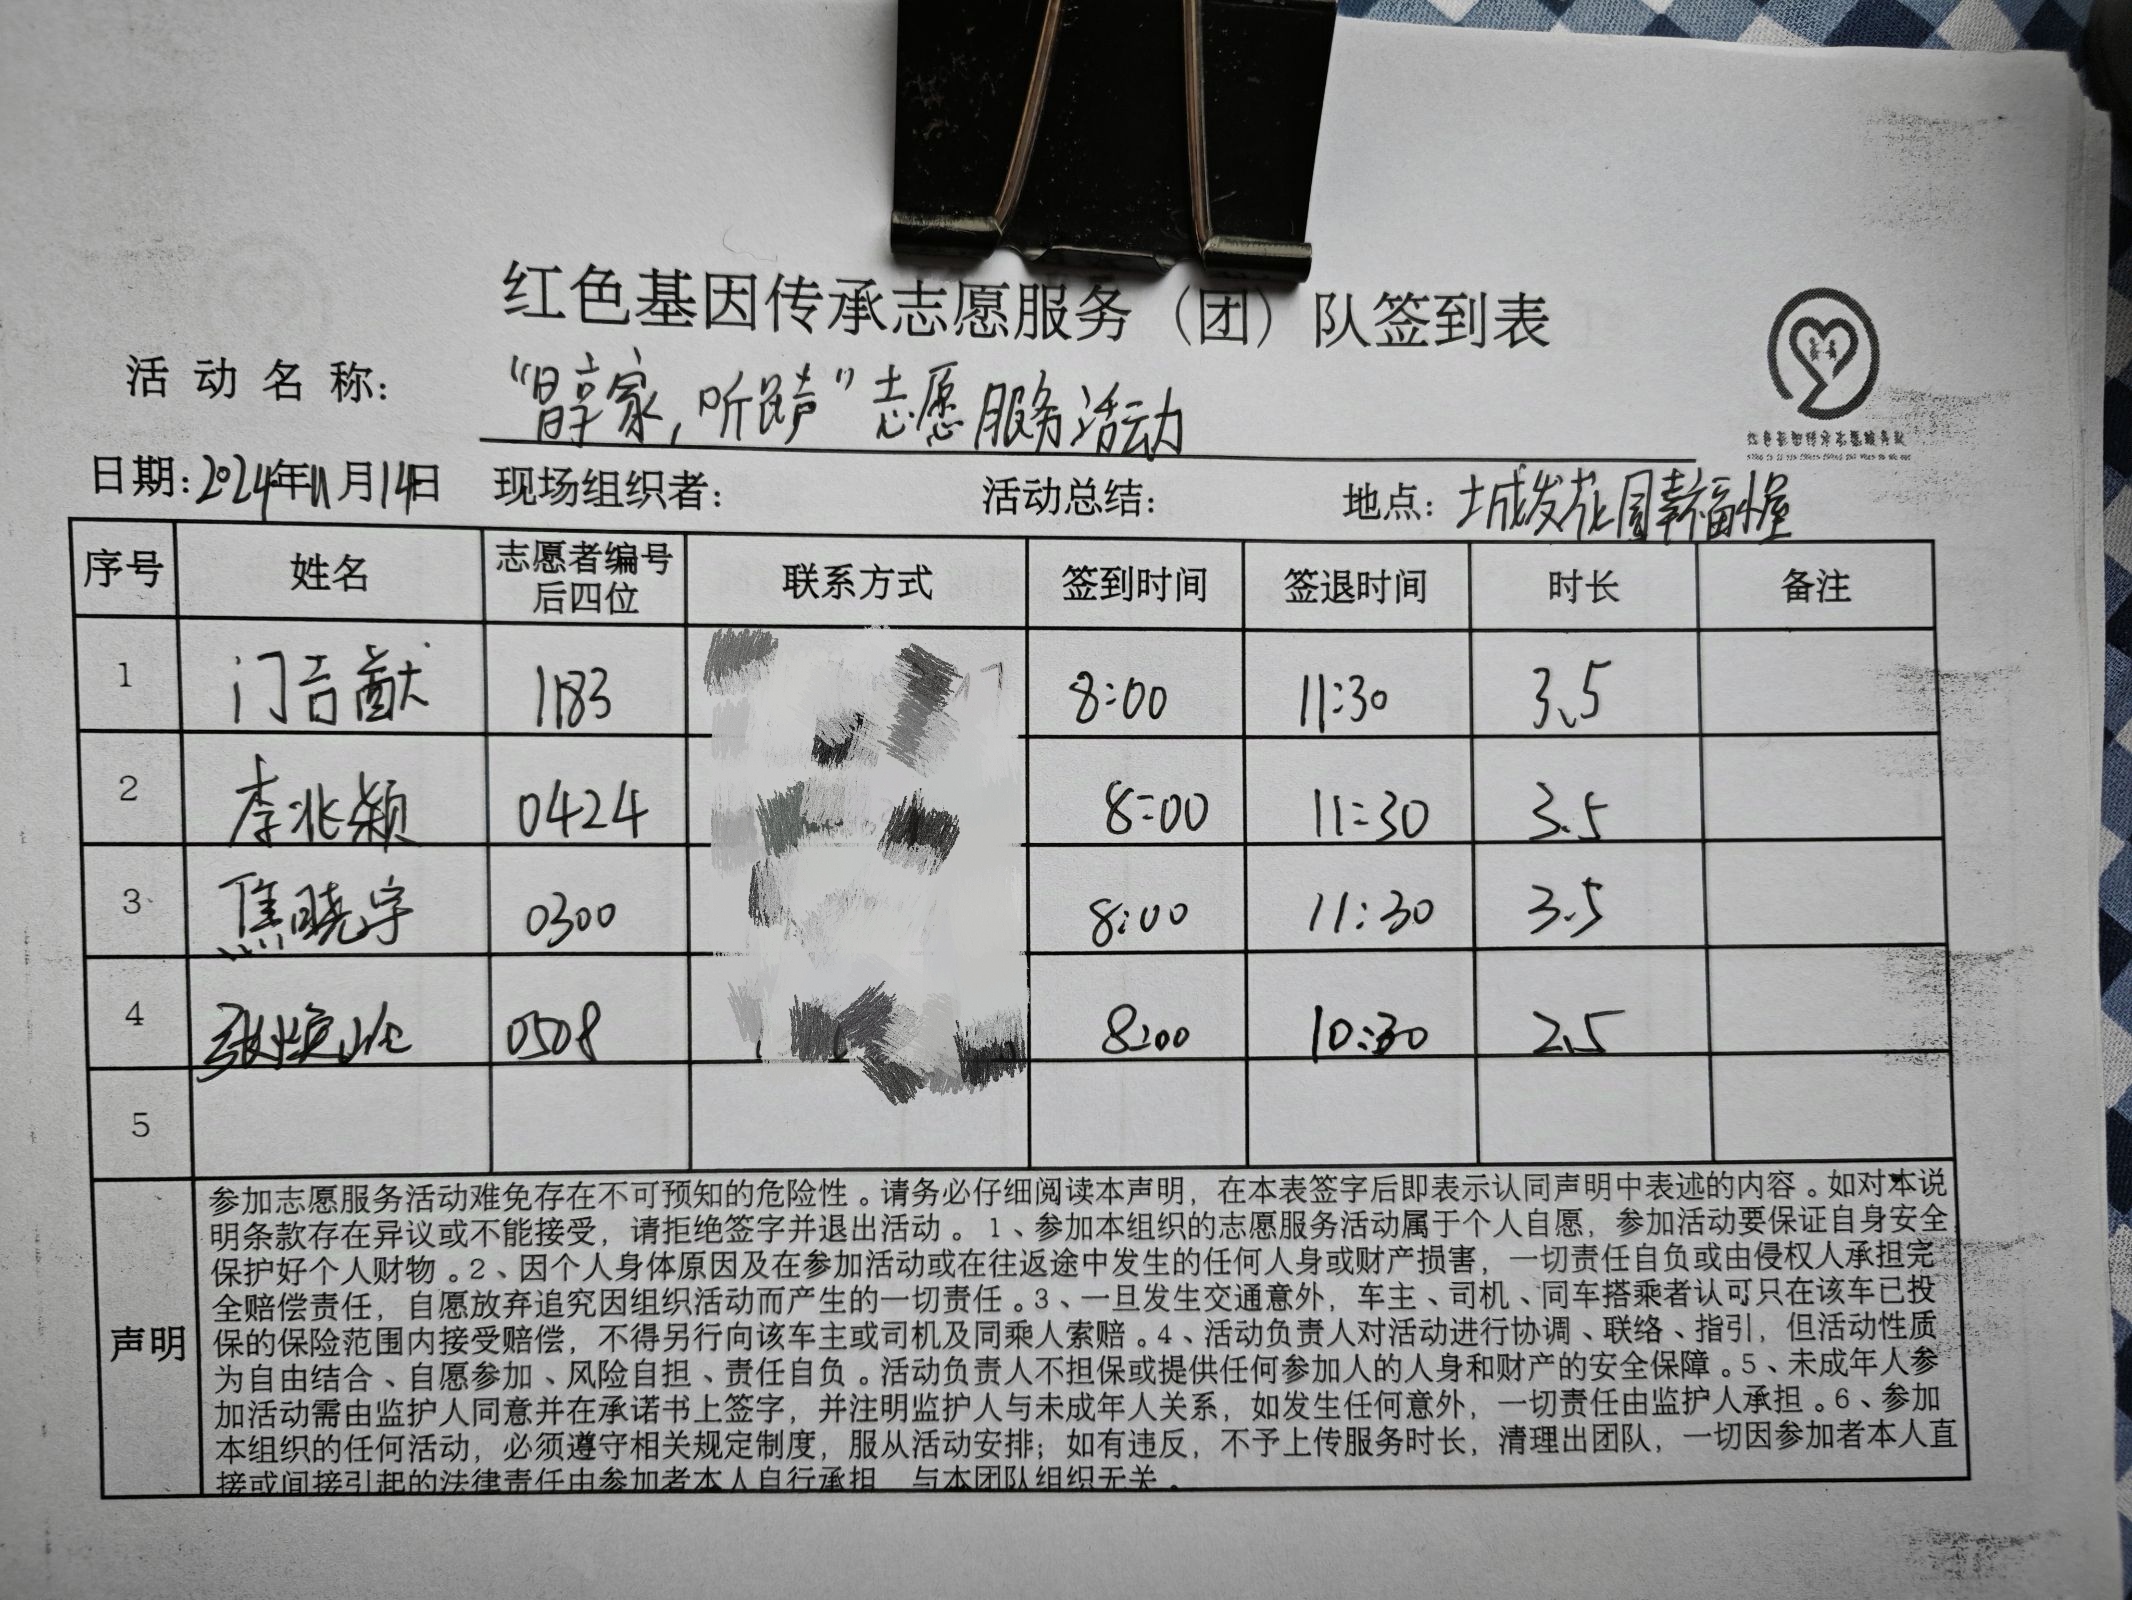 红色基因传承志愿服务（团）队签到表
活动名称：“ 家，听 声”志愿服务活动
日期：2024年11月14日 现场组织者： 活动总结： 地点：城发花园幸福小屋
序号 姓名 志愿者编号后四位 联系方式 签到时间 签退时间 时长 备注
1 门吉猷 1183 8:00 11:30 3.5
2 李兆颖 0424 8:00 11:30 3.5
3 焦晓宇 0300 8:00 11:30 3.5
4 张 0508 8:00 10:30 2.5
5
声明
参加志愿服务活动难免存在不可预知的危险性。请务必仔细阅读本声明，在本表签字后即表示认同声明中表述的内容。如对本说
明条款存在异议或不能接受，请拒绝签字并退出活动。1、参加本组织的志愿服务活动属于个人自愿，参加活动要保证自身安全
保护好个人财物。2、因个人身体原因及在参加活动或在往返途中发生的任何人身或财产损害，一切责任自负或由侵权人承担完
全赔偿责任，自愿放弃追究因组织活动而产生的一切责任。3、一旦发生交通意外，车主、司机、同车搭乘者认可只在该车已投
保的保险范围内接受赔偿，不得另行向该车主或司机及同乘人索赔。4、活动负责人对活动进行协调、联络、指引，但活动性质
为自由结合、自愿参加、风险自担、责任自负。活动负责人不担保或提供任何参加人的人身和财产的安全保障。5、未成年人参
加活动需由监护人同意并在承诺书上签字，并注明监护人与未成年人关系，如发生任何意外，一切责任由监护人承担。6、参加
本组织的任何活动，必须遵守相关规定制度，服从活动安排；如有违反，不予上传服务时长，清理出团队，一切因参加者本人直
接或间接引起的法律责任由参加者本人自行承担 与本团队组织无关。